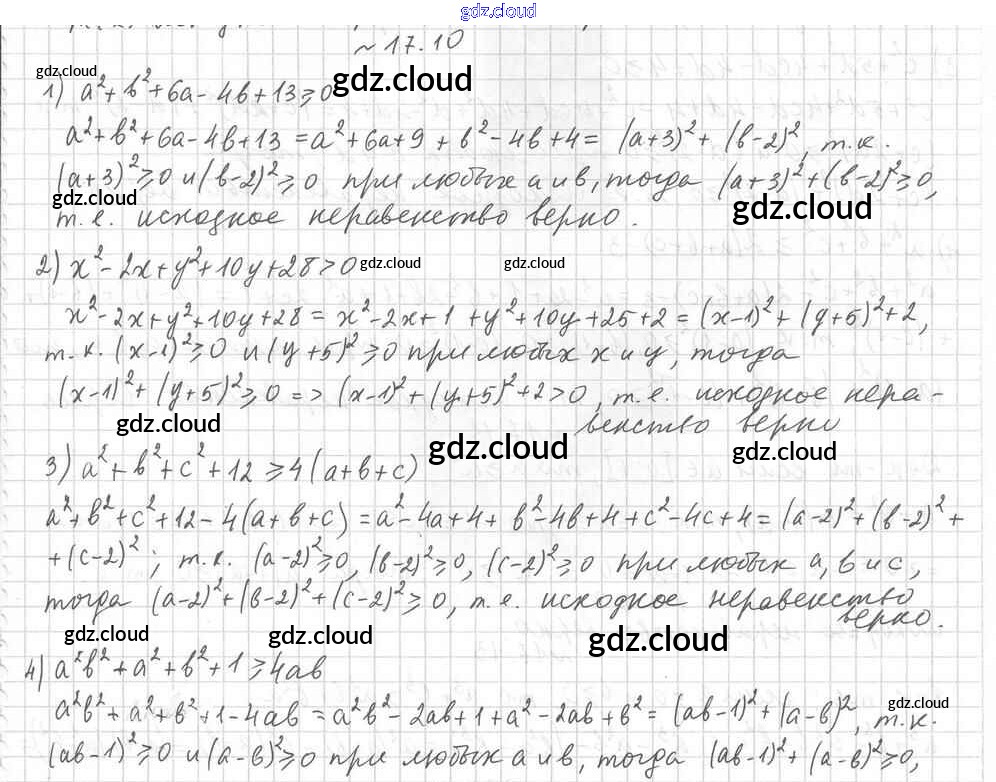 gdz.cloud
~ 17.10
gdz.cloud
gdz.cloud
1) a²+b²+6a-4b+13⩾0
a²+b²+6a-4b+13 = a²+6a+9 + b²-4b+4 = (a+3)² + (b-2)², т.к.
(a+3)²⩾0 и (b-2)²⩾0 при любых a и b, тогда (a+3)²+(b-2)²⩾0,
gdz.cloud
gdz.cloud
т.е. исходное неравенство верно.
2) x²-2x+y²+10y+28>0
gdz.cloud
gdz.cloud
x²-2x+y²+10y+28 = x²-2x+1 +y²+10y+25+2 = (x-1)²+(y+5)²+2,
т.к. (x-1)²⩾0 и (y+5)²⩾0 при любых x и y, тогда
(x-1)²+(y+5)²⩾0 => (x-1)²+(y+5)²+2>0, т.е. исходное нера-
венство верно
gdz.cloud
gdz.cloud
gdz.cloud
3) a²+b²+c²+12⩾4(a+b+c)
a²+b²+c²+12-4(a+b+c) = a²-4a+4+ b²-4b+4+c²-4c+4 = (a-2)²+(b-2)²+
+(c-2)²; т.к. (a-2)²⩾0, (b-2)²⩾0, (c-2)²⩾0 при любых a, b и c,
тогда (a-2)²+(b-2)²+(c-2)²⩾0, т.е. исходное неравенство
верно.
gdz.cloud
gdz.cloud
gdz.cloud
4) a²b²+a²+b²+1⩾4ab
a²b²+a²+b²+1-4ab = a²b²-2ab+1+a²-2ab+b² = (ab-1)²+(a-b)², т.к.
gdz.cloud
(ab-1)²⩾0 и (a-b)²⩾0 при любых a и b, тогда (ab-1)²+(a-b)²⩾0,